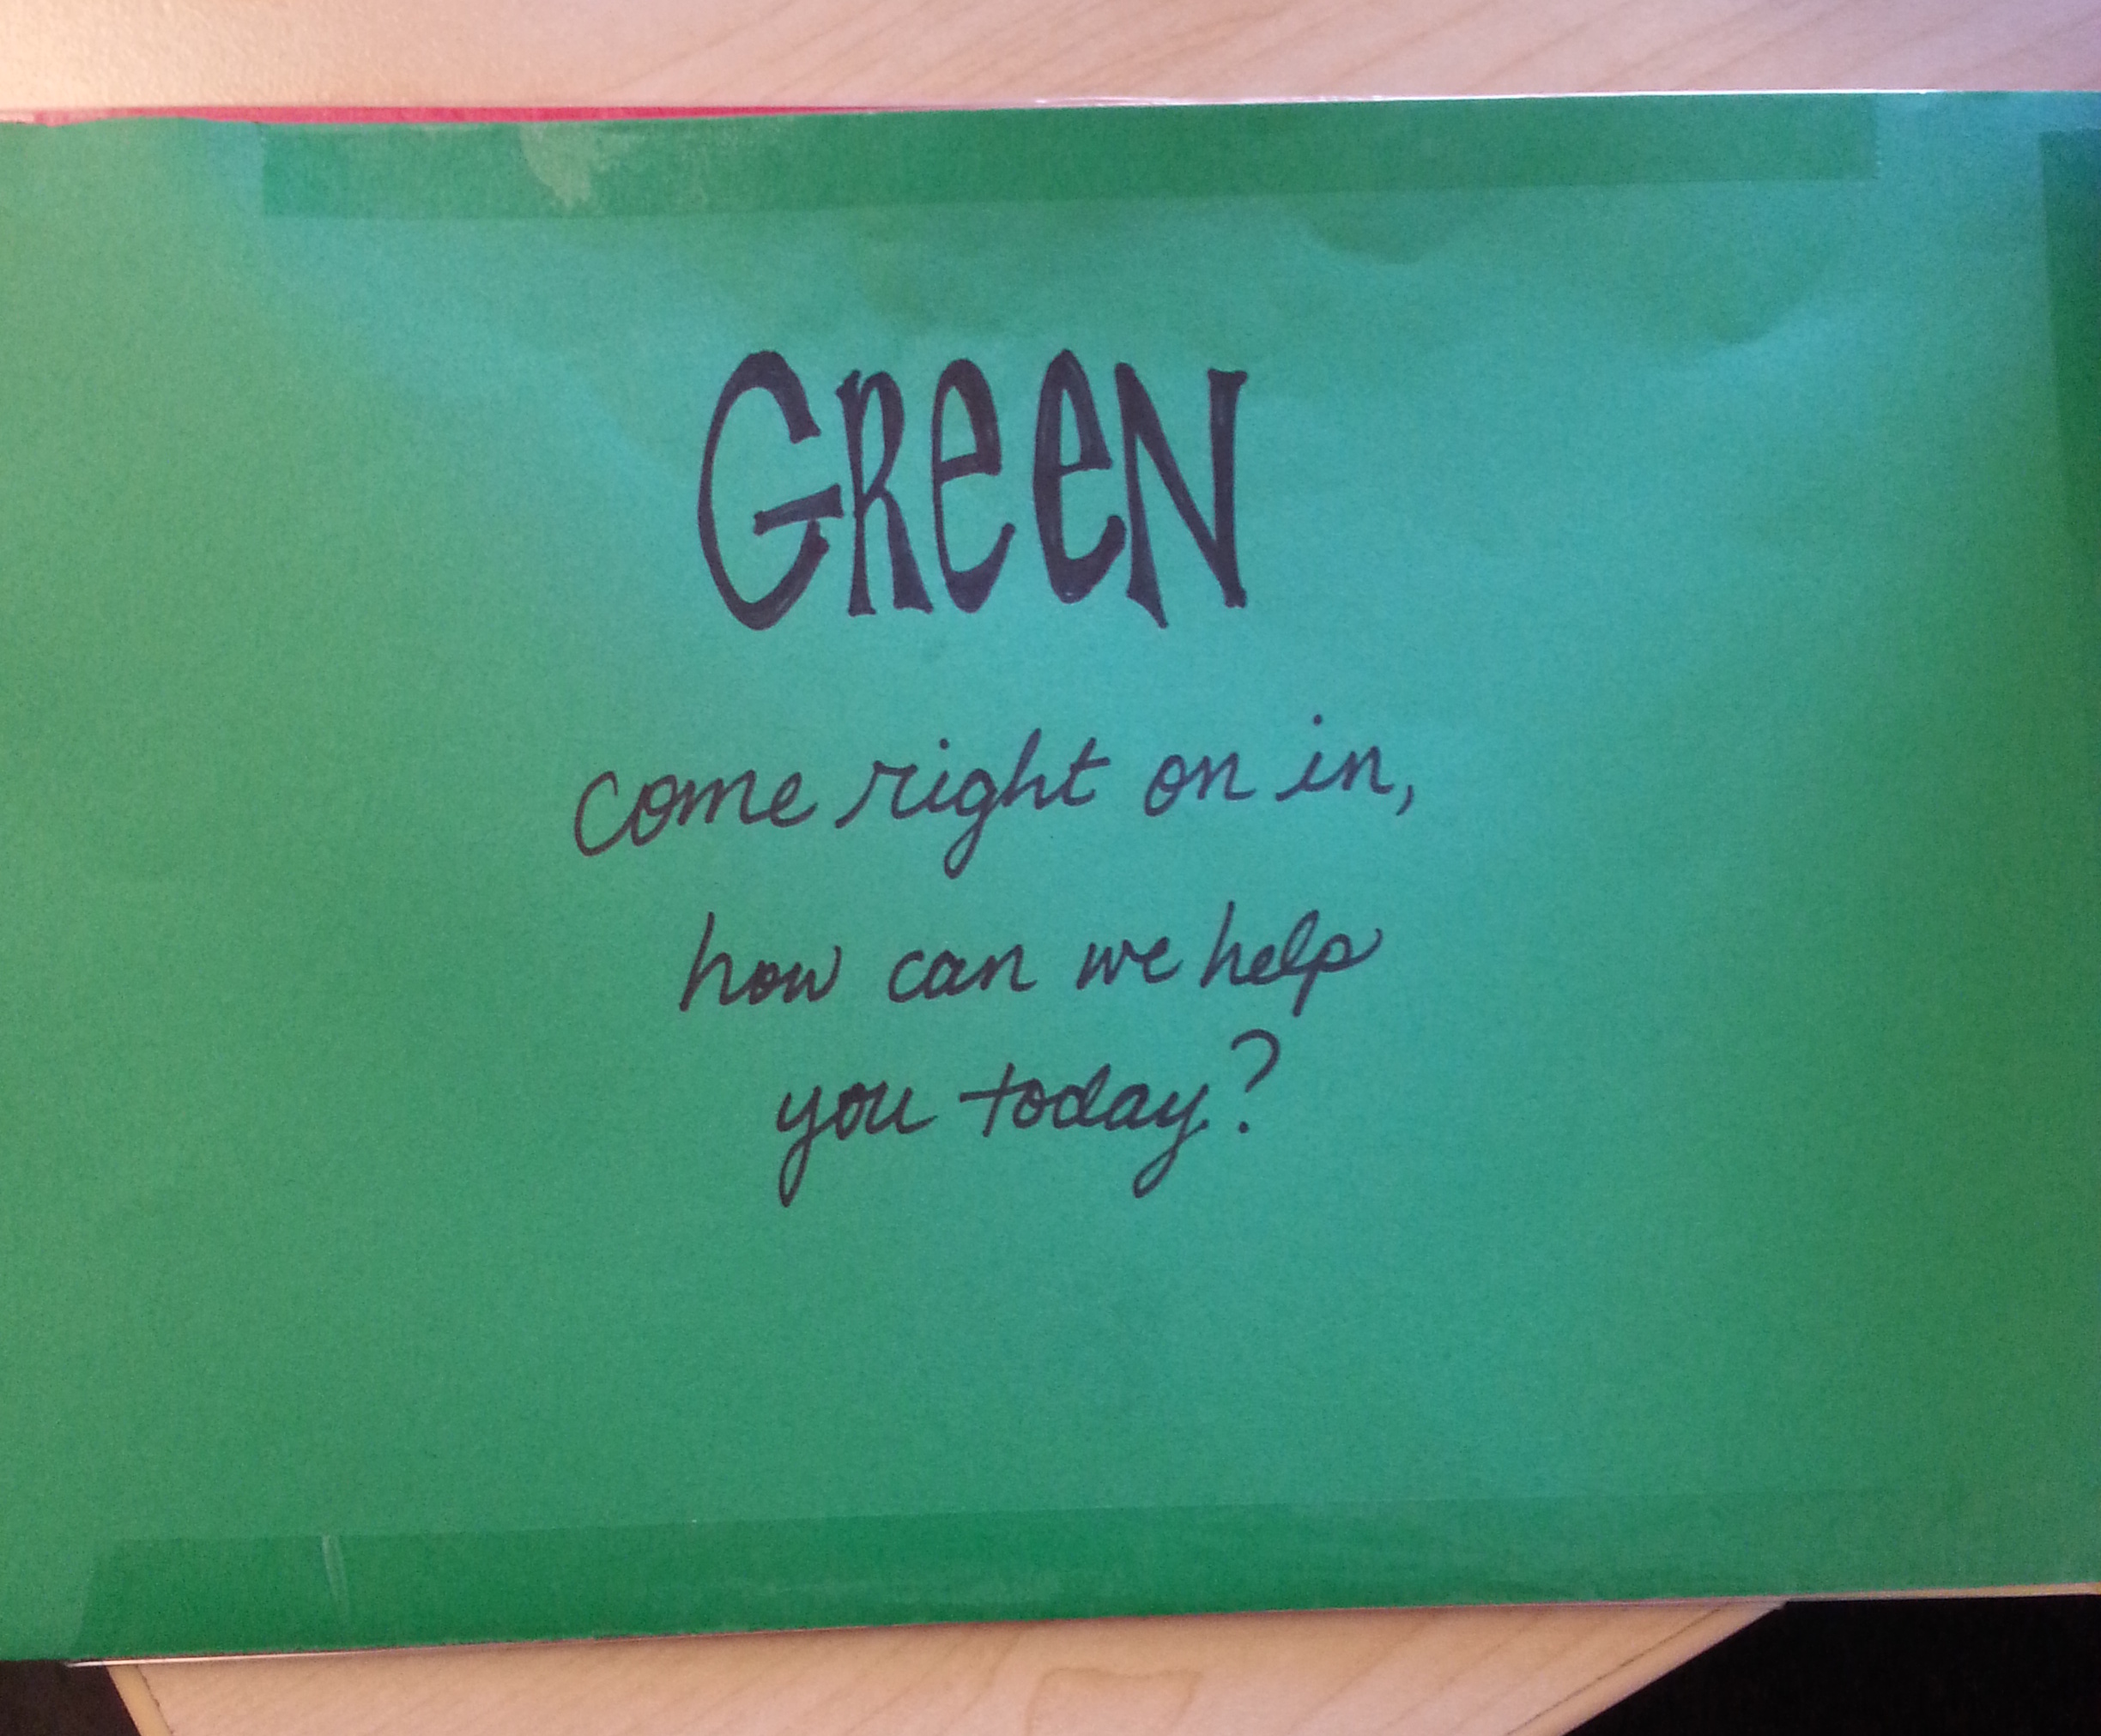 GReeN
come right on in,
how can we help
you today?